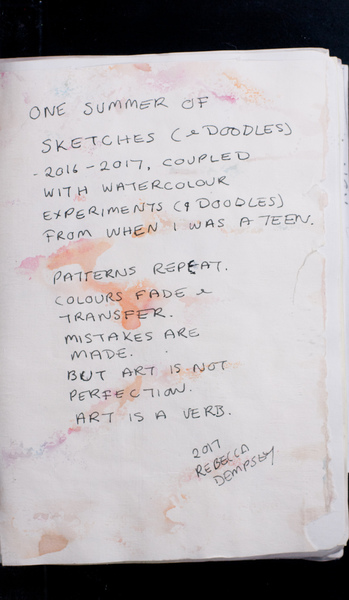 ONE SUMMER OF
SKETCHES (& DOODLES)
- 2016 - 2017, COUPLED
WITH WATERCOLOUR
EXPERIMENTS (& DOODLES)
FROM WHEN I WAS A TEEN.
PATTERNS REPEAT.
COLOURS FADE &
TRANSFER.
MISTAKES ARE
MADE.
BUT ART IS NOT
PERFECTION.
ART IS A VERB.
2017
REBECCA
DEMPSEY